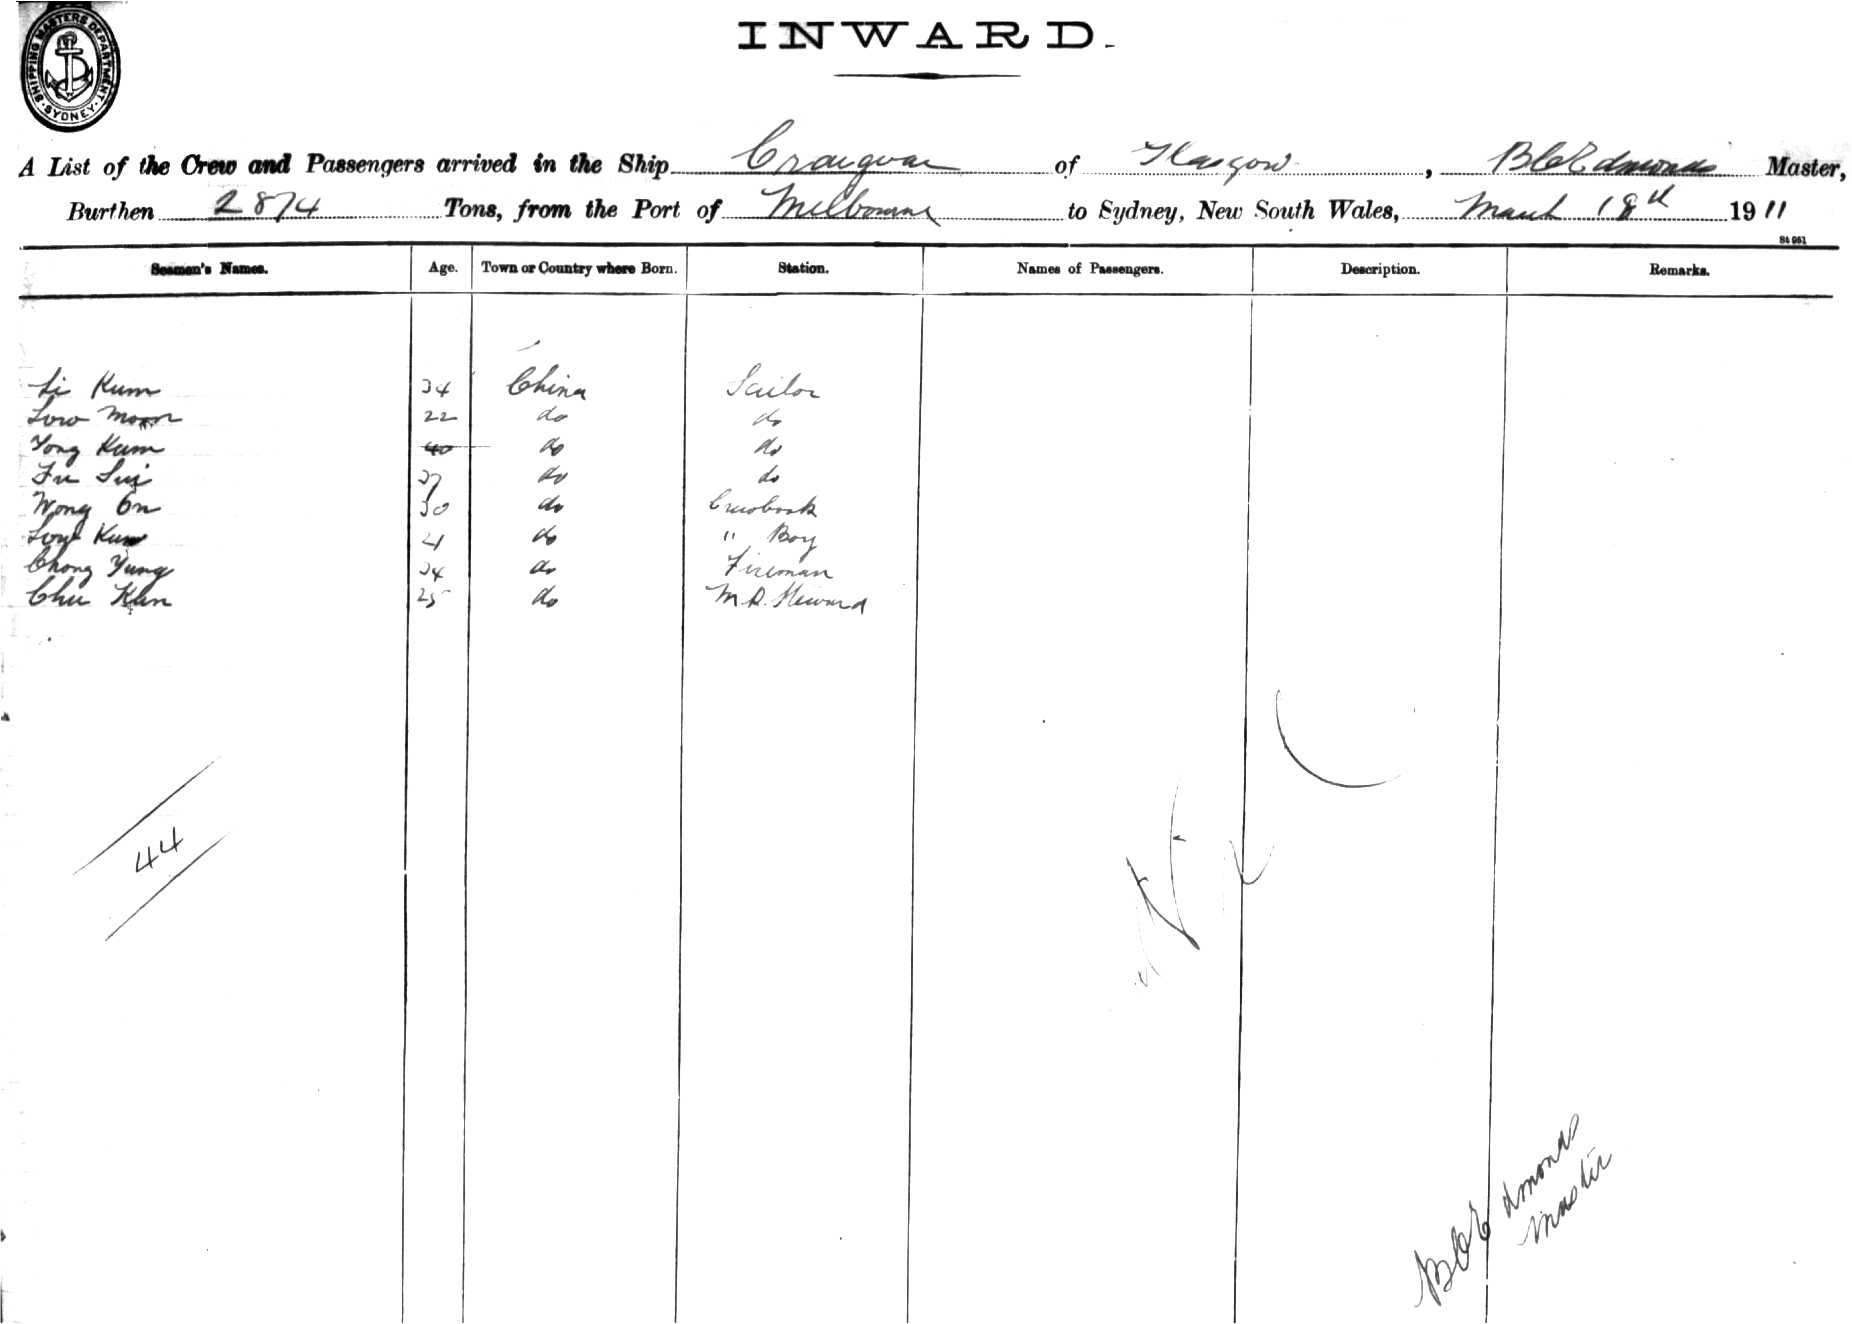 SHIPPING MASTERS DEPARTMENT · SYDNEY ·
INWARD.
A List of the Crew and Passengers arrived in the Ship Craigvar of Glasgow, B C Edmonds Master,
Burthen 2874 Tons, from the Port of Melbourne to Sydney, New South Wales, March 18th 1911
Seamen's Names. Age. Town or Country where Born. Station. Names of Passengers. Description. Remarks.
Li Kum 34 China Sailor
Low Moon 22 do do
Yong Kum 40 do do
Fu Sui 37 do do
Wong On 30 do Crew Cook
Low Kum 21 do " Boy
Chong Yung 34 do Fireman
Chu Kan 25 do M.R. Steward
44
B C Edmonds
Master